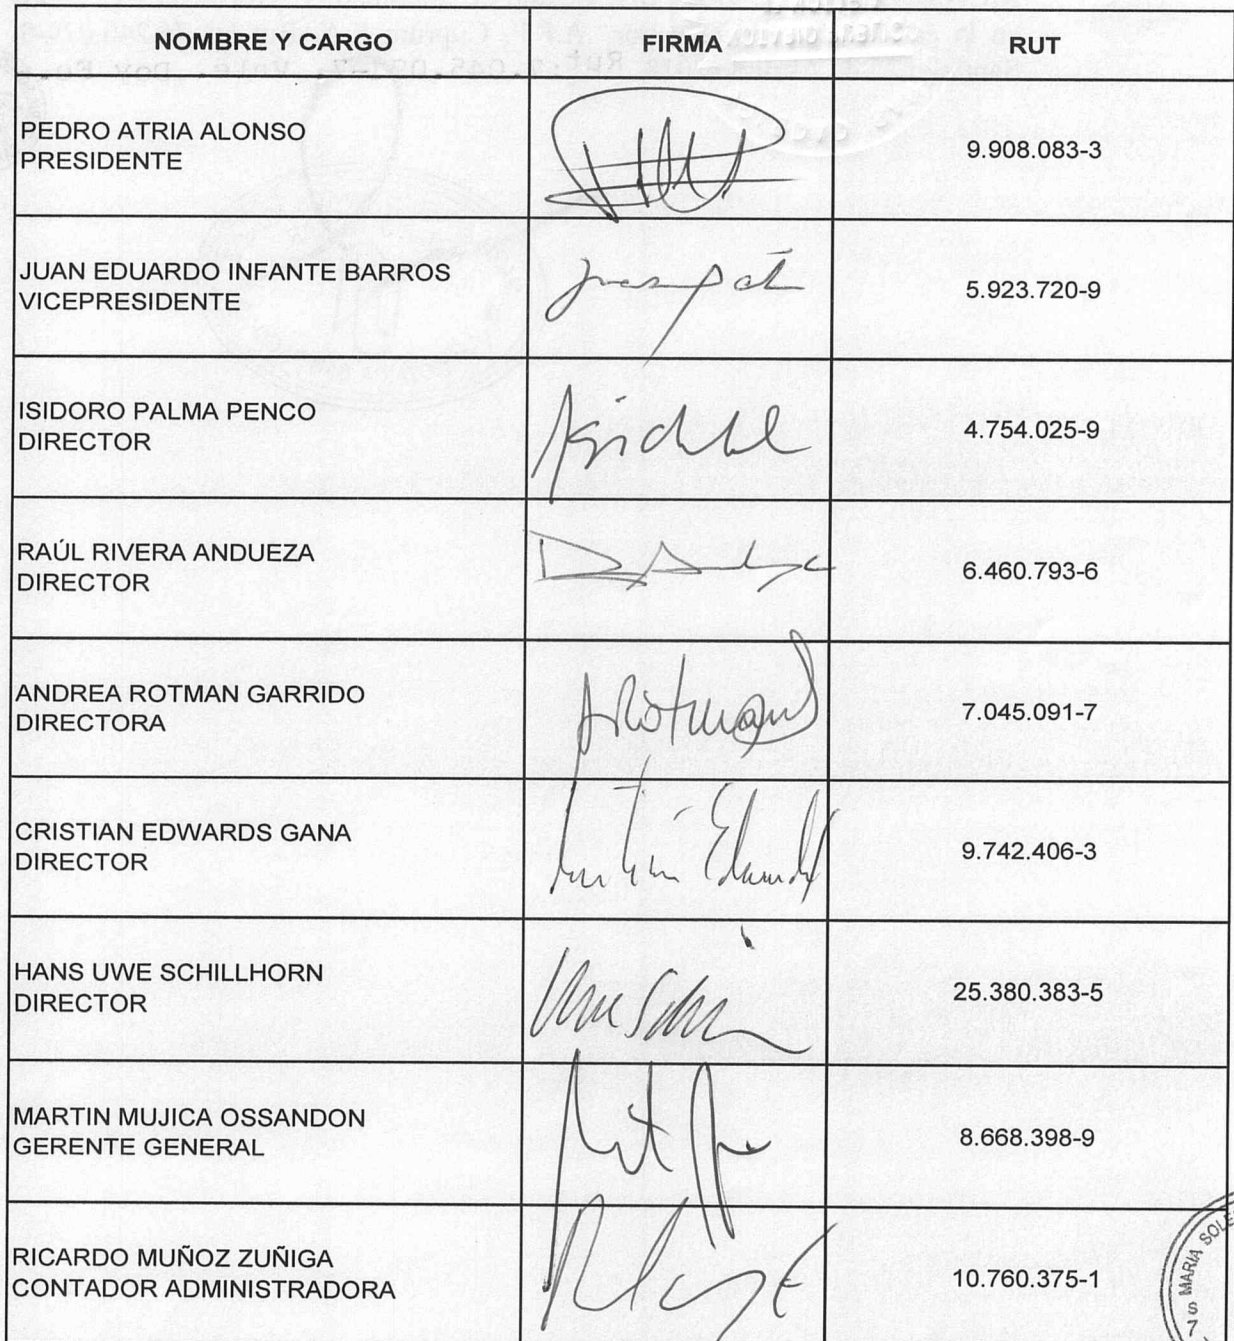 NOMBRE Y CARGO FIRMA RUT
PEDRO ATRIA ALONSO
PRESIDENTE
9.908.083-3
JUAN EDUARDO INFANTE BARROS
VICEPRESIDENTE
5.923.720-9
ISIDORO PALMA PENCO
DIRECTOR
4.754.025-9
RAÚL RIVERA ANDUEZA
DIRECTOR
6.460.793-6
ANDREA ROTMAN GARRIDO
DIRECTORA
7.045.091-7
CRISTIAN EDWARDS GANA
DIRECTOR
9.742.406-3
HANS UWE SCHILLHORN
DIRECTOR
25.380.383-5
MARTIN MUJICA OSSANDON
GERENTE GENERAL
8.668.398-9
RICARDO MUÑOZ ZUÑIGA
CONTADOR ADMINISTRADORA
10.760.375-1
MARIA
S
7